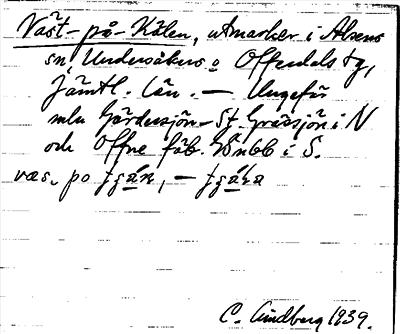 Väst-på-Kälen, utmarker i Alsens
sn, Undersåkers o Offerdals tg,
Jämtl. län. – Ungefär
mln Gärdessjön – St. Grässjön i N
och Offne fäb. i S.
väs, po
C. Lindberg 1939.